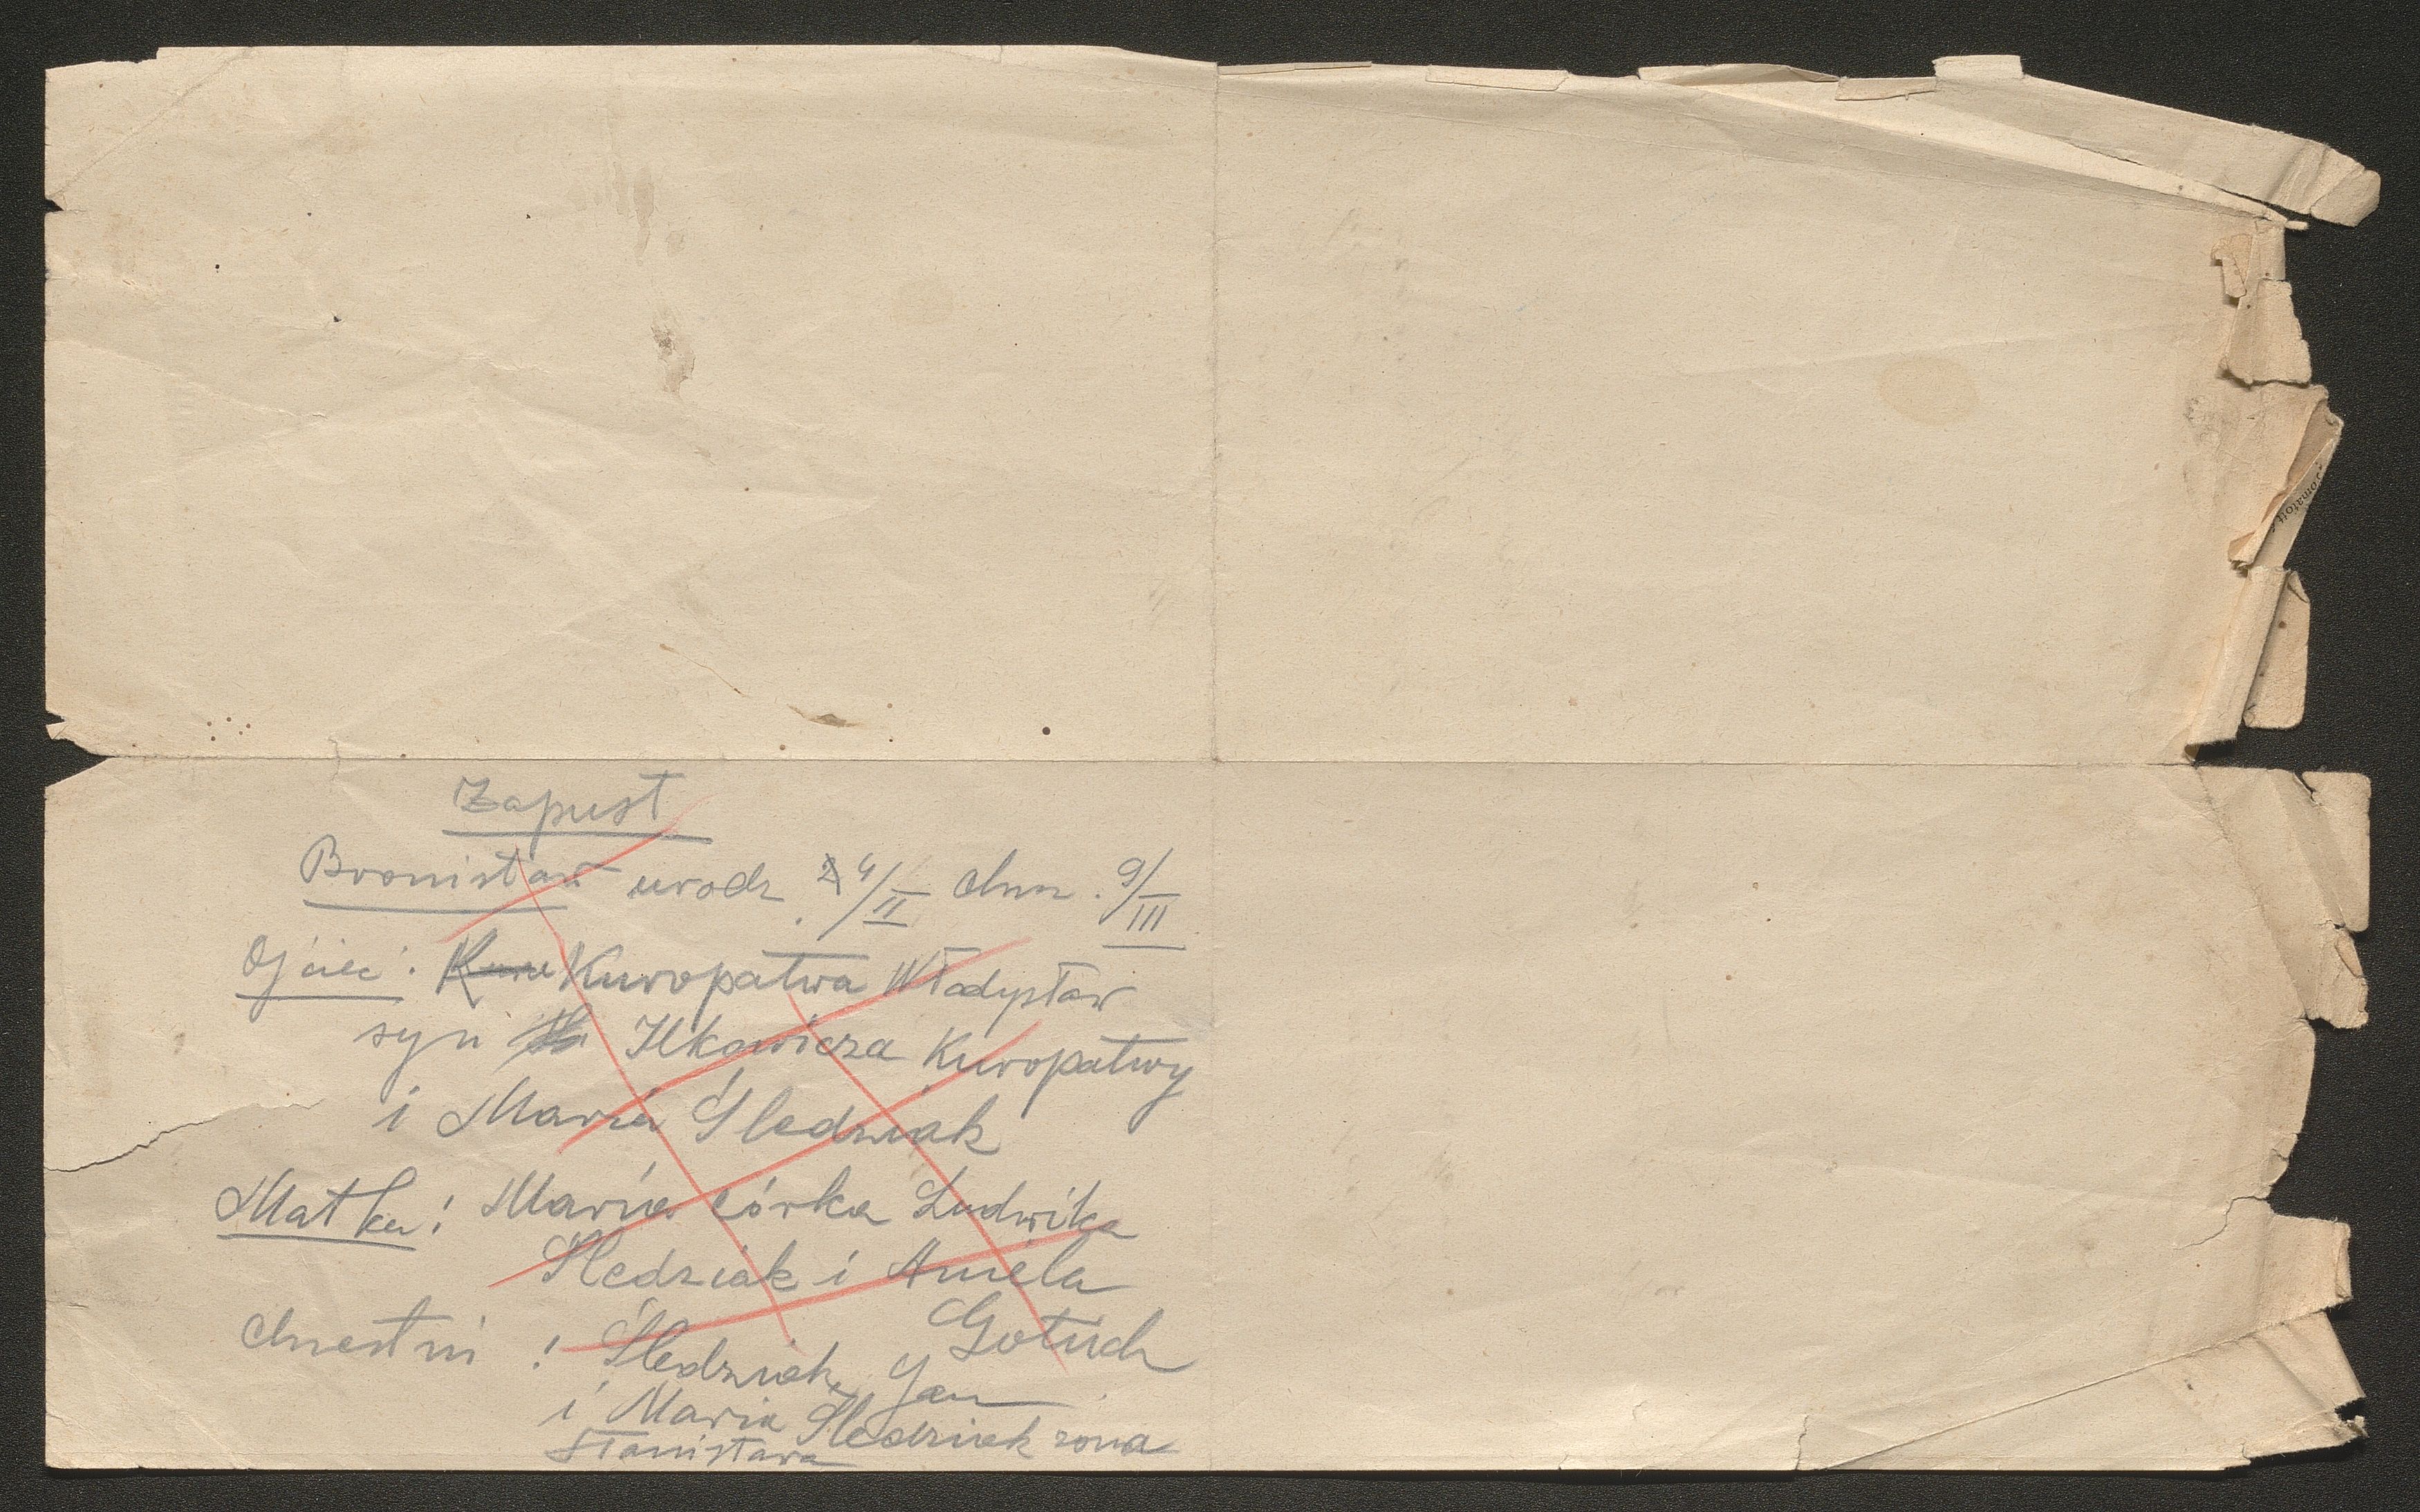 Zapust
Bronisław urodz. 4/II chrz. 9/III
Ojciec: Kuropatwa Władysław
syn Ilkowicza Kuropatwy
i Maria Śledziak
Matka: Maria córka Ludwika
Śledziak i Aniela
Gołuch
chrzestni: Śledziak Jan
i Maria Śledziak zona
Stanisława